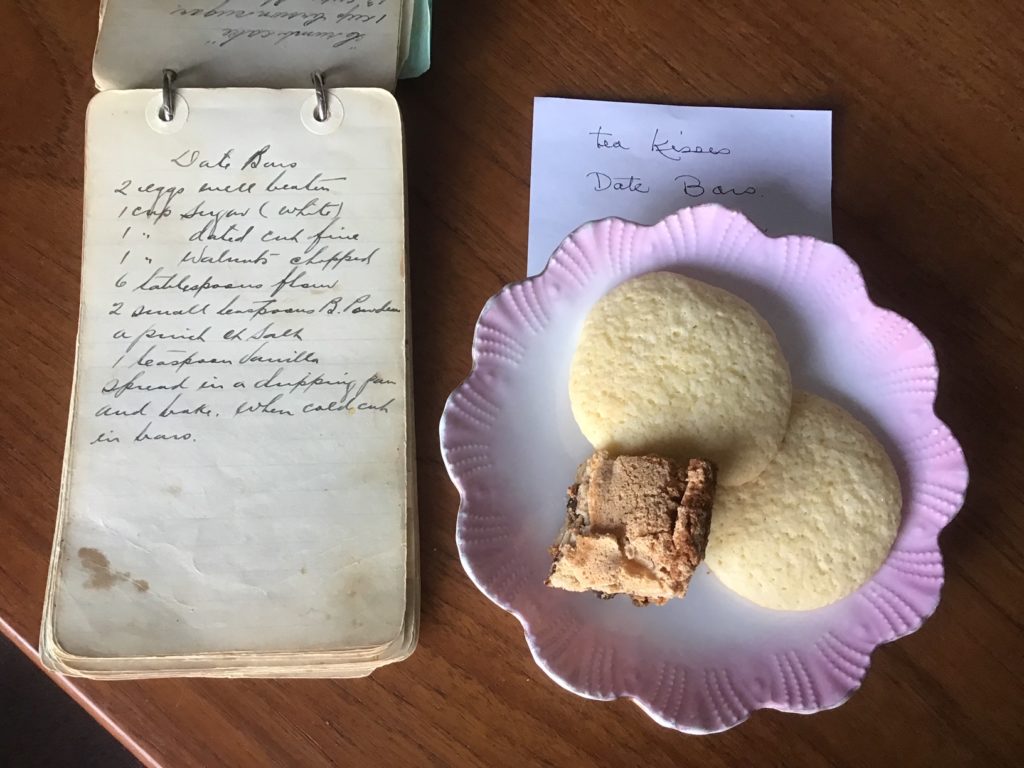 "Crumb cake"
1 cup brown sugar
Date Bars
2 eggs well beaten
1 cup sugar (white)
1 " dated cut fine
1 " walnuts chopped
6 tablespoons flour
2 small teaspoons B. Powder
a pinch of salt
1 teaspoon vanilla
spread in a dripping pan
and bake. When cold cut
in bars.
tea Kisses
Date Bars.